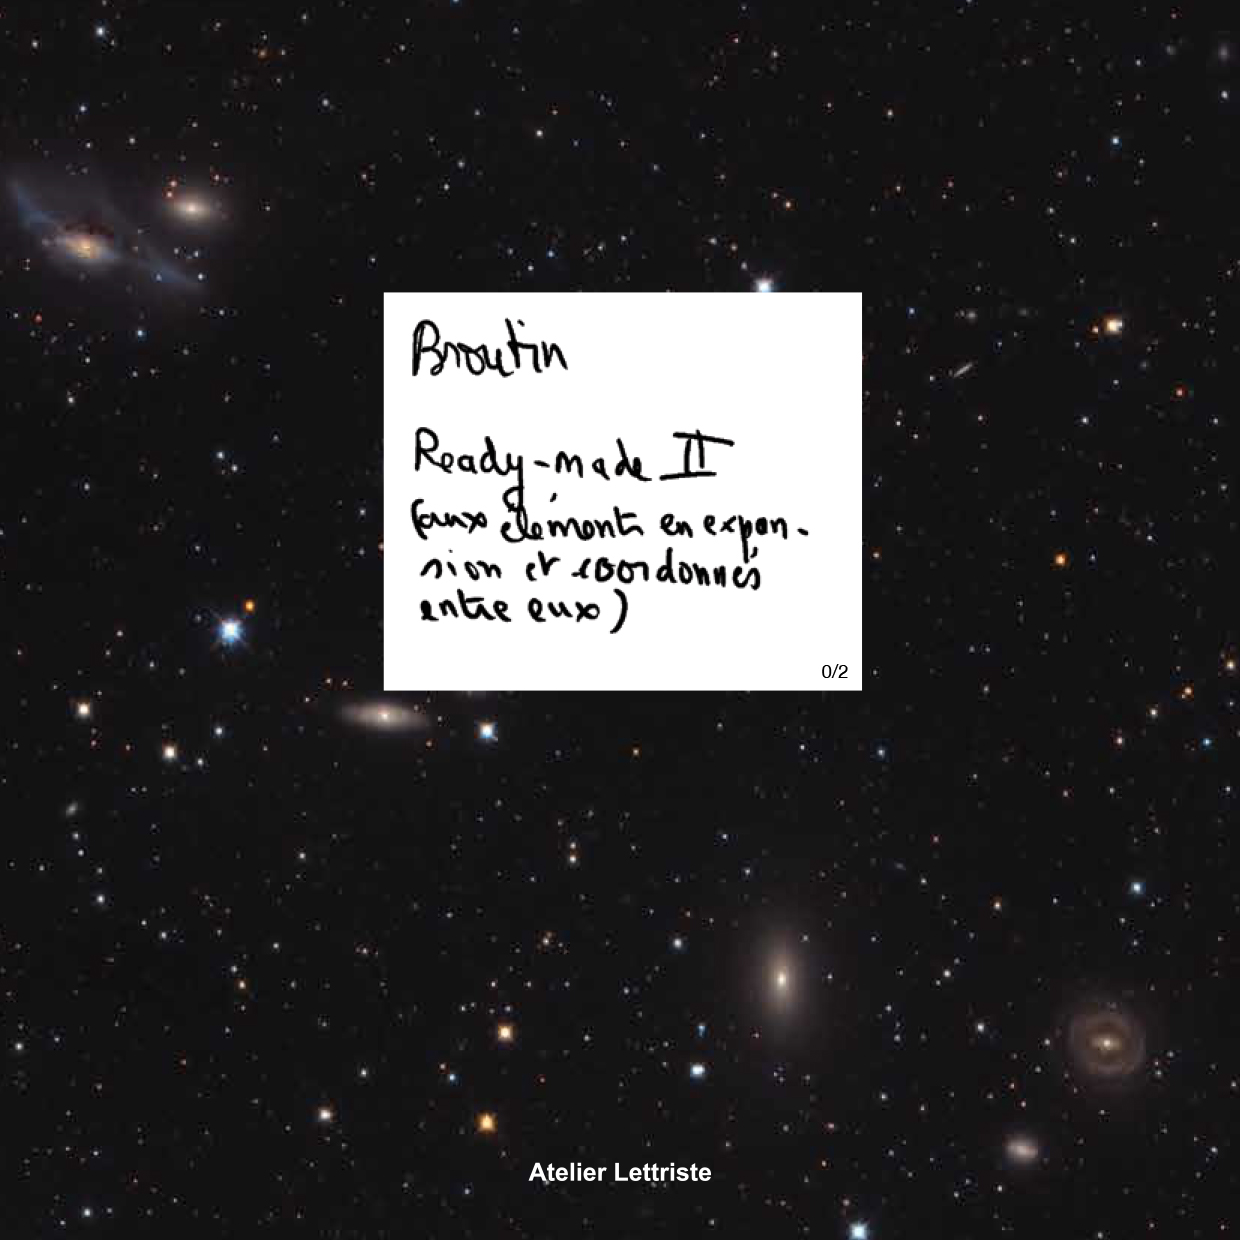 Broutin
Ready-made II
(aux éléments en expan-
sion et coordonnés
entre eux)
0/2
Atelier Lettriste